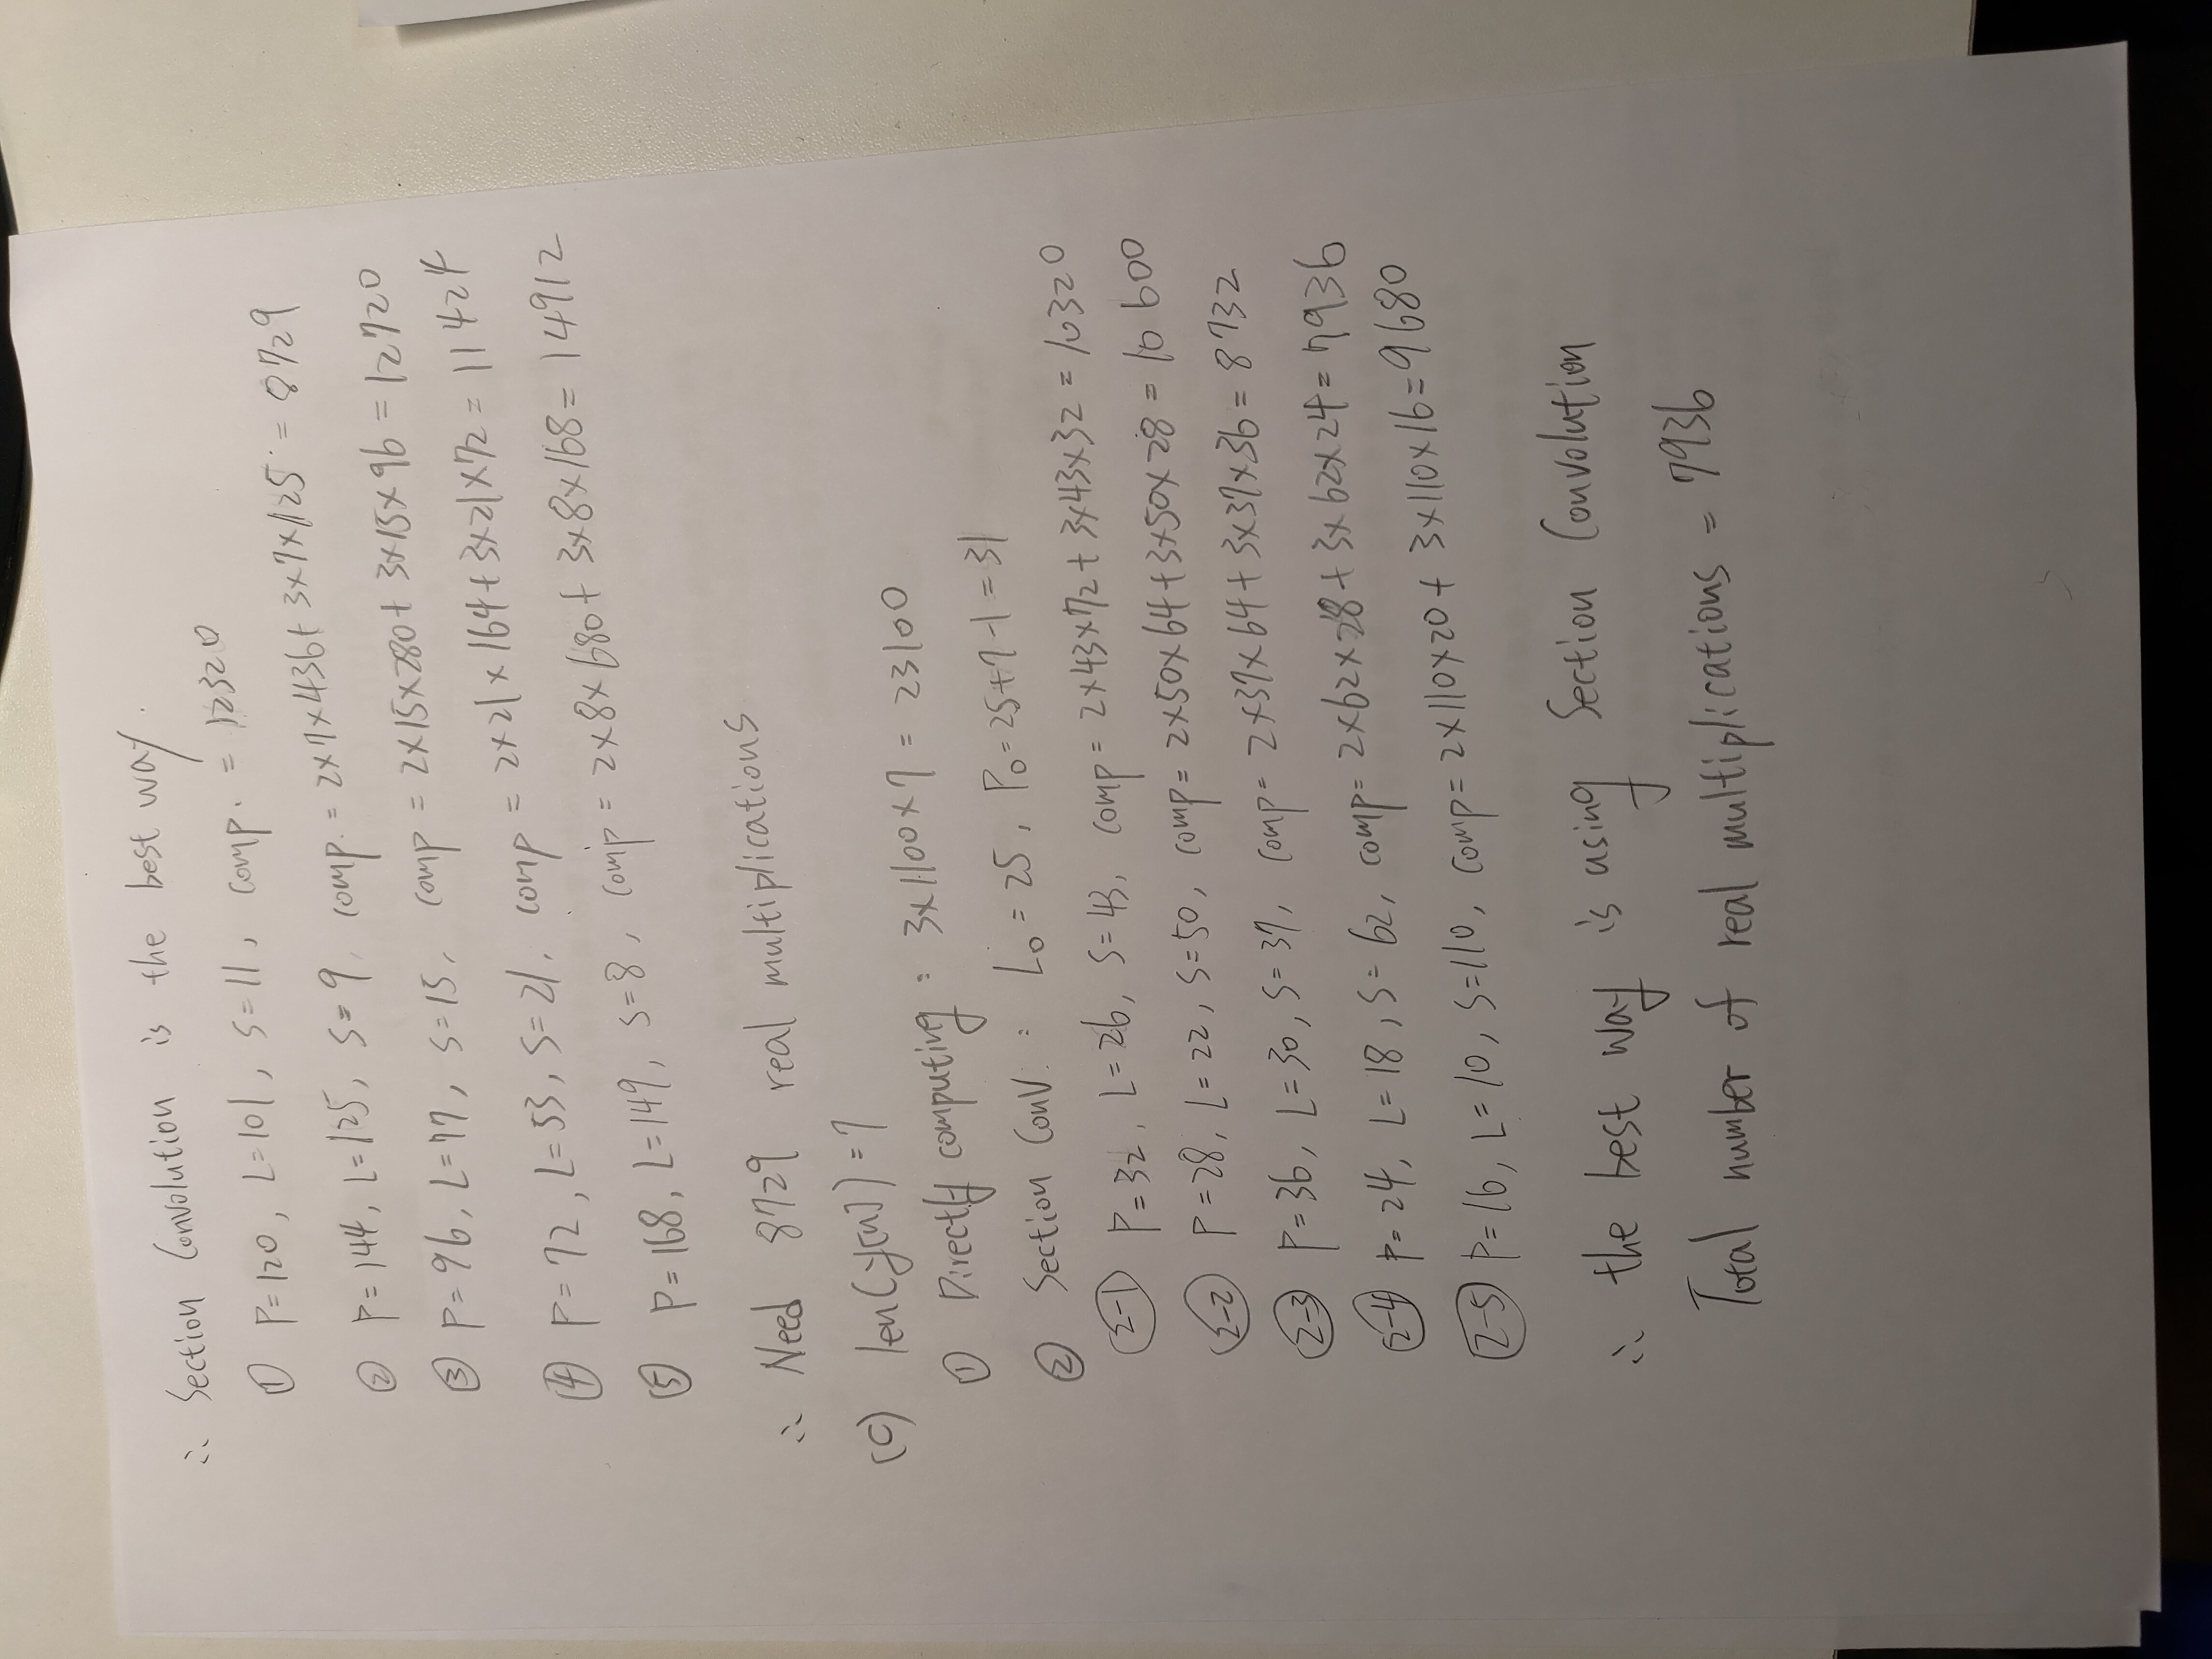 ∴ Section Convolution is the best way.
① P=120, L=101, S=11, comp. = 12320
② P=144, L=125, S=9, comp. = 2×7×436+3×7×125 = 8729
③ P=96, L=77, S=15, comp = 2×15×280+3×15×96 = 12720
④ P=72, L=53, S=21, comp = 2×21×164+3×21×72 = 11424
⑤ P=168, L=149, S=8, comp = 2×8×680+3×8×168 = 14912
∴ Need 8729 real multiplications
(C) len(y[n]) = 7
① Directly computing : 3×1100×7 = 23100
② Section Conv. : L₀ = 25, P₀ = 25+7-1 = 31
2-1 P=32, L=26, S=43, comp = 2×43×72+3×43×32 = 10320
2-2 P=28, L=22, S=50, comp = 2×50×64+3×50×28 = 10600
2-3 P=36, L=30, S=37, comp = 2×37×64+3×37×36 = 8732
2-4 P=24, L=18, S=62, comp = 2×62×28+3×62×24 = 7936
2-5 P=16, L=10, S=110, comp = 2×110×20+3×110×16 = 9680
∴ the best way is using Section Convolution
Total number of real multiplications = 7936